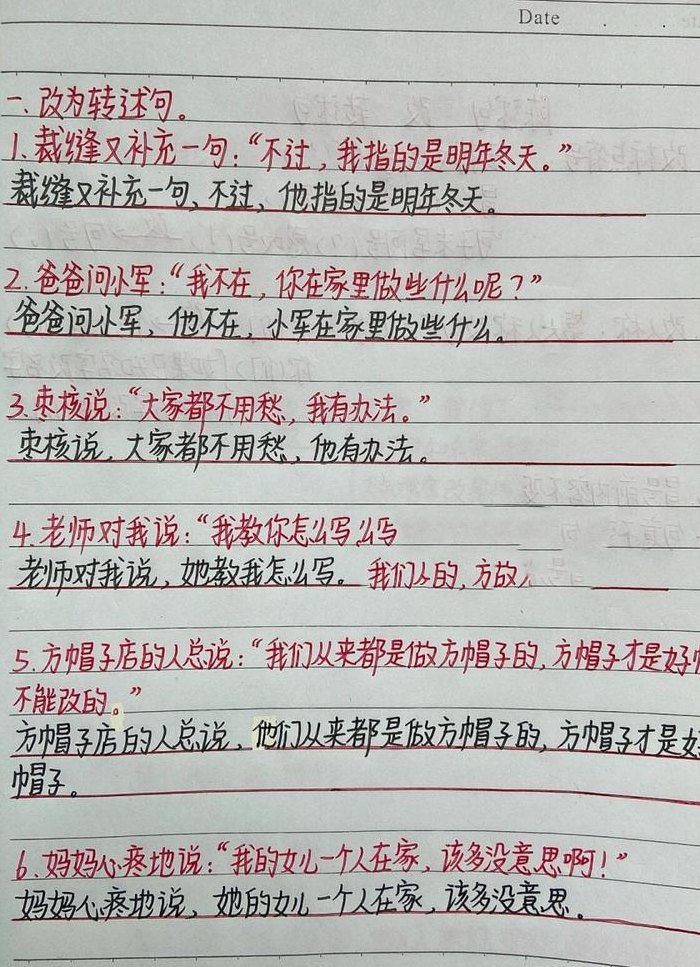 Date
一、改为转述句。
1.裁缝又补充一句:“不过,我指的是明年冬天。”
裁缝又补充一句,不过,他指的是明年冬天。
2.爸爸问小军:“我不在,你在家里做些什么呢?”
爸爸问小军,他不在,小军在家里做些什么。
3.枣核说:“大家都不用愁,我有办法。”
枣核说,大家都不用愁,他有办法。
4.老师对我说:“我教你怎么写么写
老师对我说,她教我怎么写。我们么的,方放
5.方帽子店的人总说:“我们从来都是做方帽子的,方帽子才是好帽
不能改的。”
方帽子店的人总说,他们从来都是做方帽子的,方帽子才是好
帽子。
6.妈妈心疼地说:“我的女儿一个人在家,该多没意思啊!”
妈妈心疼地说,她的女儿一个人在家,该多没意思。